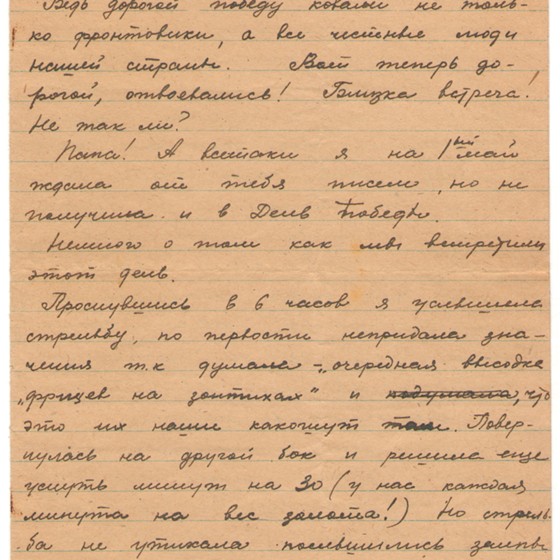 Ведь дорогой победу ковали не толь-
ко фронтовики, а все честные люди
нашей страны. Вот теперь до-
рогой, отвоевались! Близка встреча!
Не так ли?
Папа! А всетаки я на 1ый май
ждала от тебя писем, но не
получила и в День Победы.
Немного о том как мы встретили
этот день.
Проснувшись в 6 часов я услышала
стрельбу, по первости непридала зна-
чения т.к думала - „очередная высадка
„фрицев на зонтиках" и подумала, что
это их наши кокошут там. Повер-
нулась на другой бок и решила еще
уснуть минут на 30 (у нас каждая
минута на вес золота!) Но стрель-
ба не утихала послышились залпы